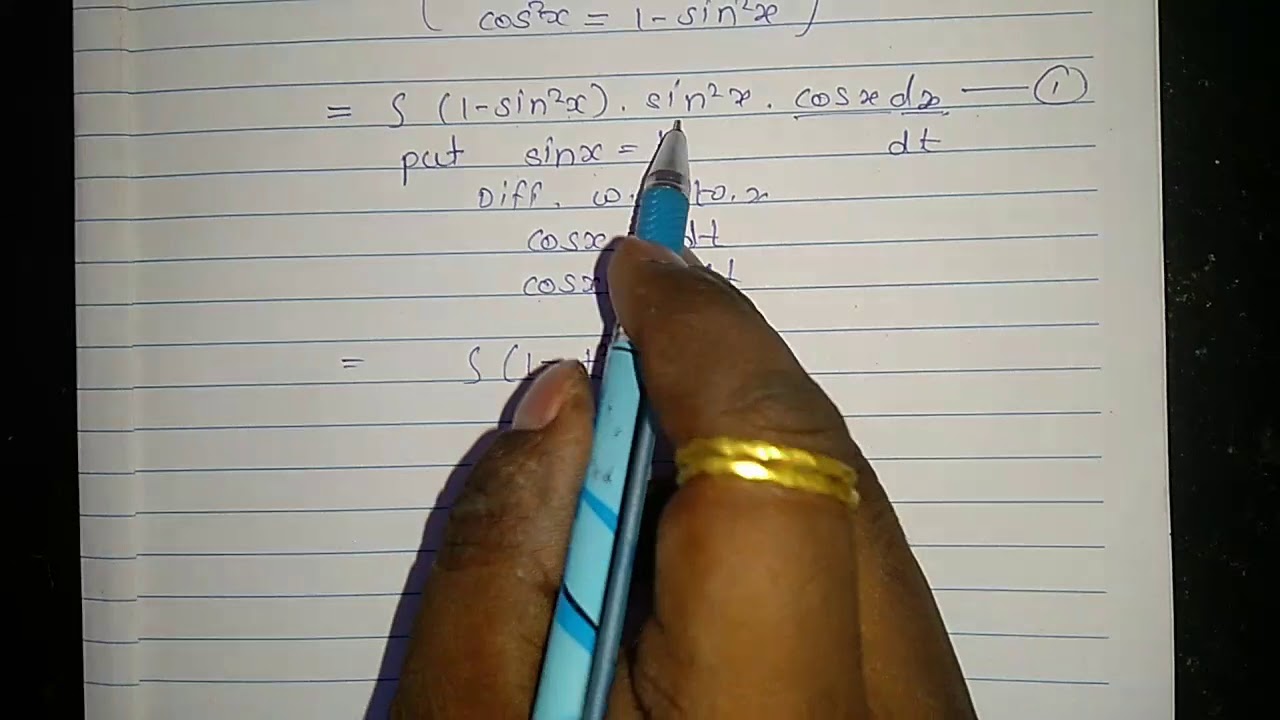 ( cos²x = 1 - sin²x )
= ∫ (1-sin²x) . sin²x . cosx dx —— ①
put sinx = dt
Diff. w. to.x
cosx dt
cosx
= ∫ (1-